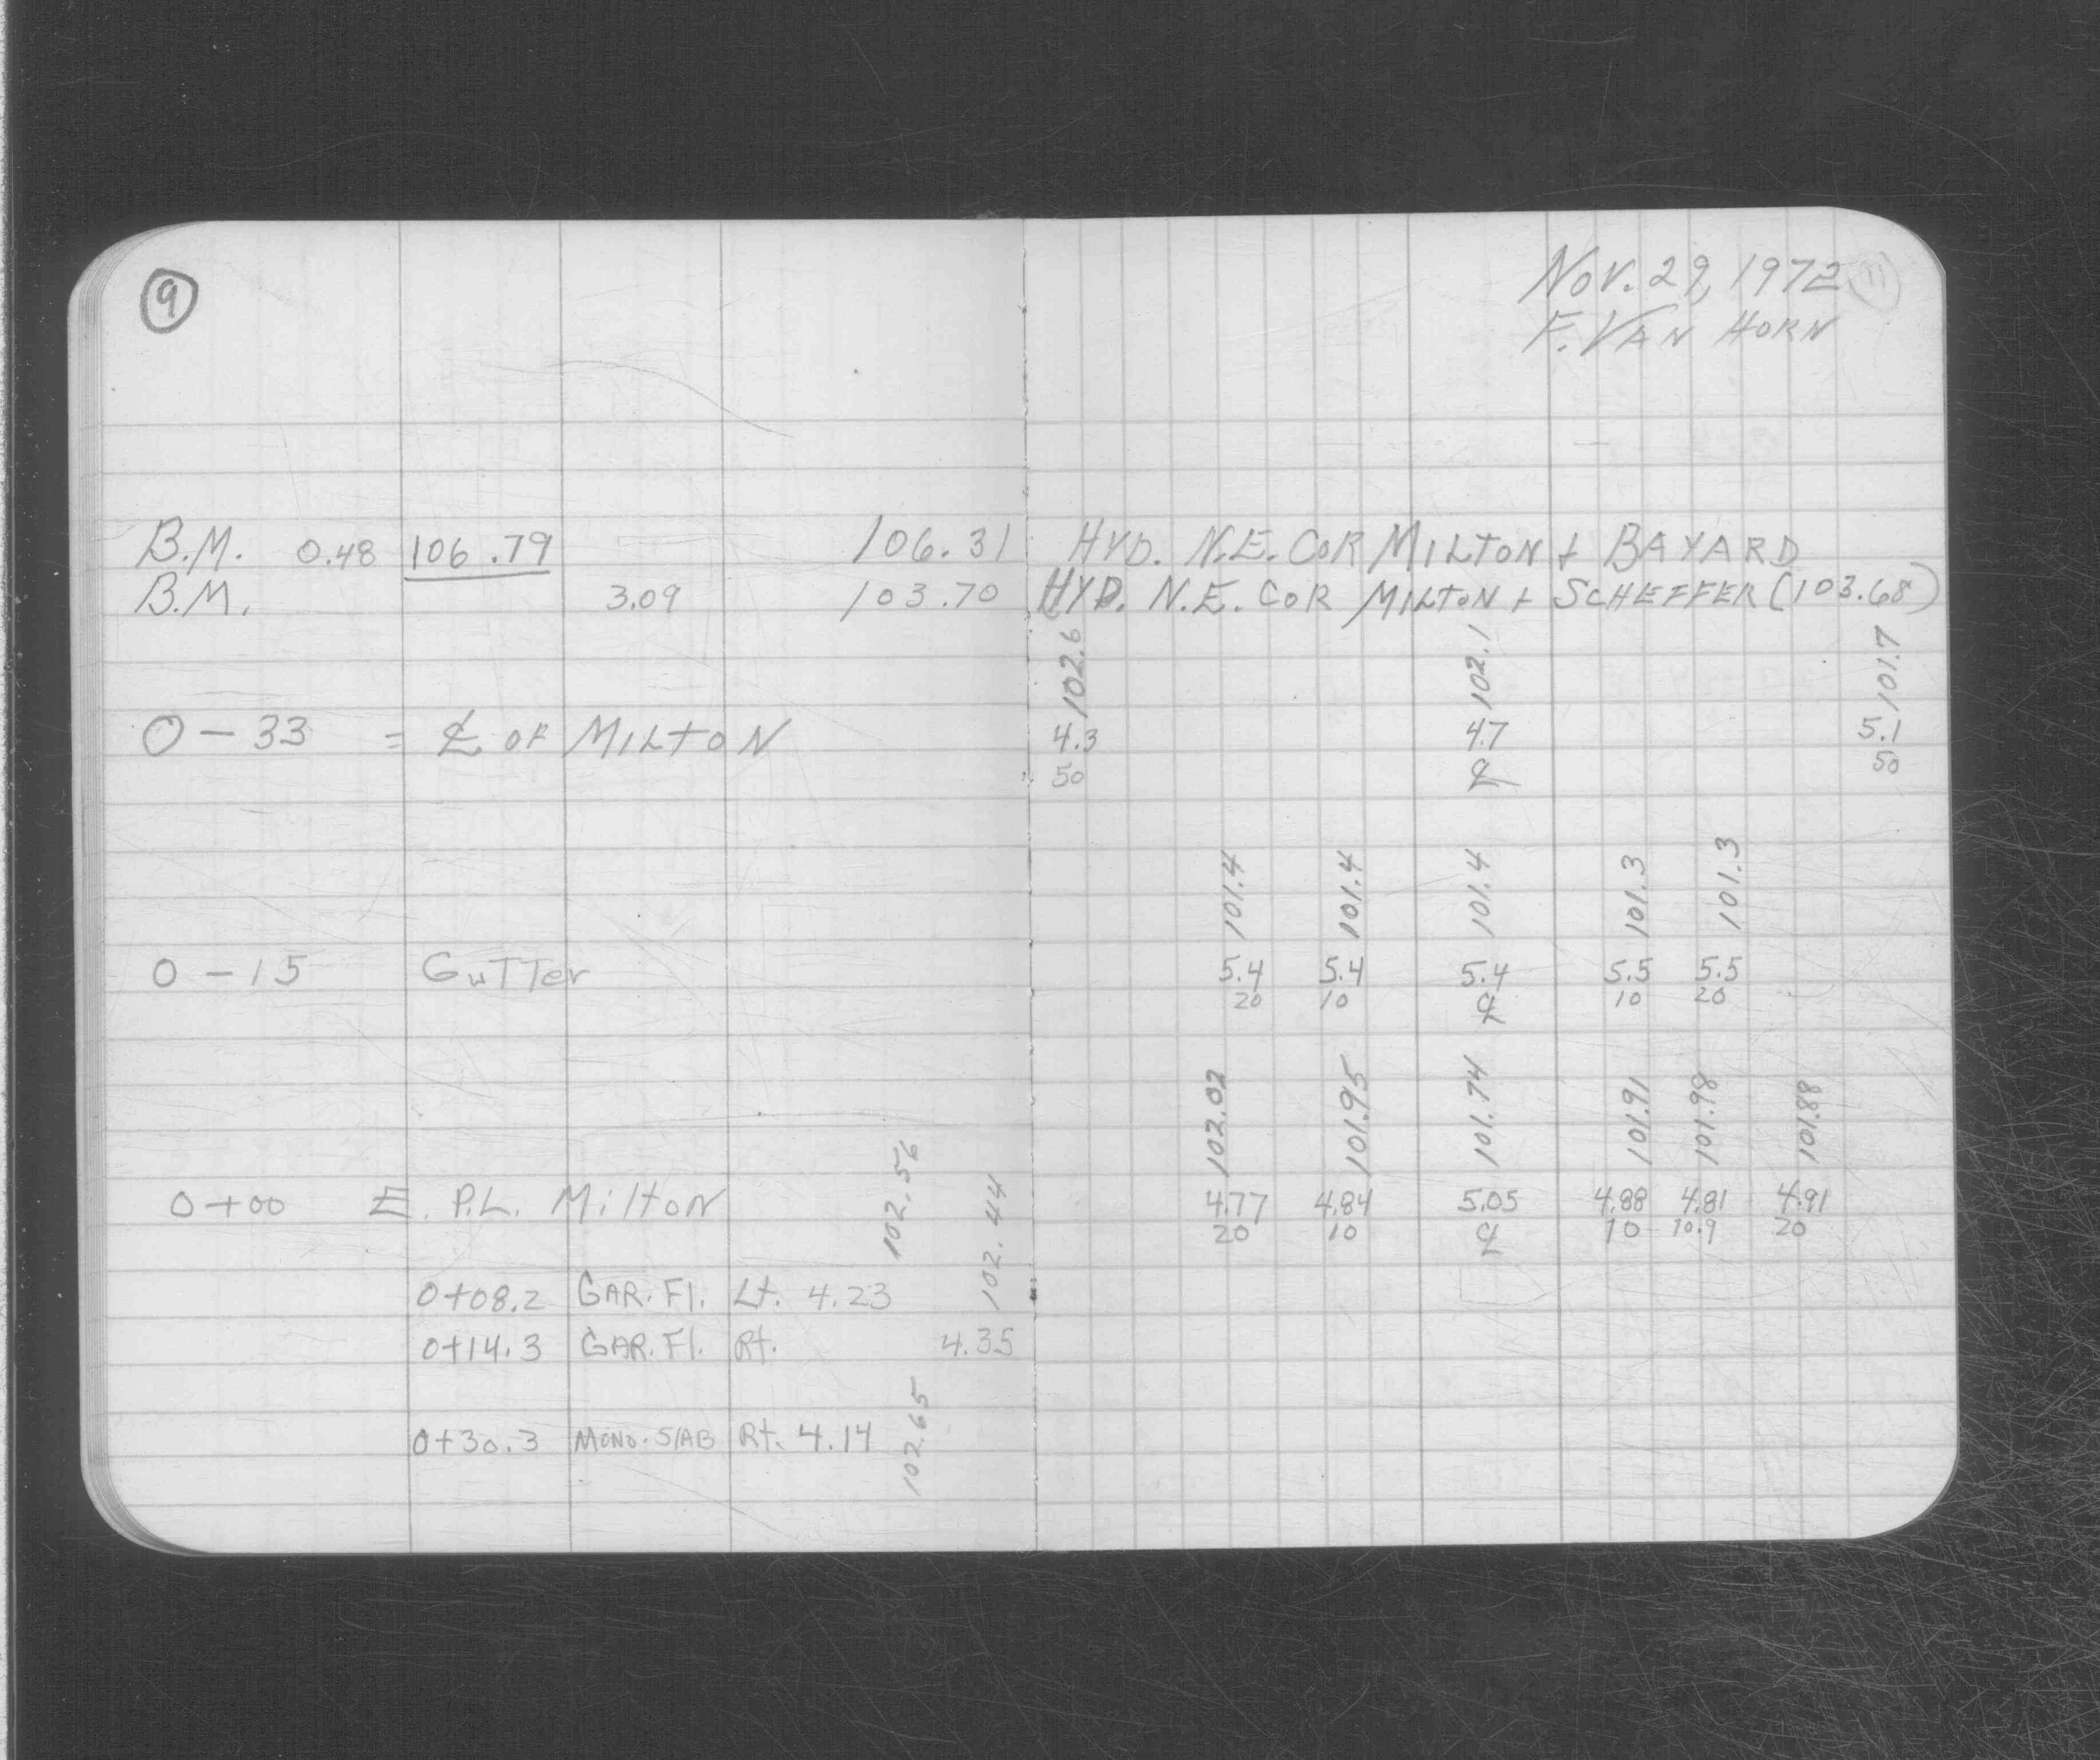 9
Nov. 29, 1972
F. VAN HORN
B.M. 0.48 106.79 106.31 HYD. N.E. COR MILTON + BAYARD
B.M. 3.09 103.70 HYD. N.E. COR MILTON + SCHEFFER (103.68)
102.6 102.1 101.7
0-33 = ℄ OF MILTON 4.3 4.7 5.1
50 ℄ 50
101.4 101.4 101.4 101.3 101.3
0-15 GuTTer 5.4 5.4 5.4 5.5 5.5
20 10 ℄ 10 20
102.02 101.95 101.74 101.91 101.98 101.88
0+00 E. P.L. MiltoN 4.77 4.84 5.05 4.88 4.81 4.91
20 10 ℄ 10 10.9 20
102.56 102.44
0+08.2 GAR. Fl. Lt. 4.23
0+14.3 GAR. Fl. Rt. 4.35
0+30.3 MONO. SlAB Rt. 4.14 102.65